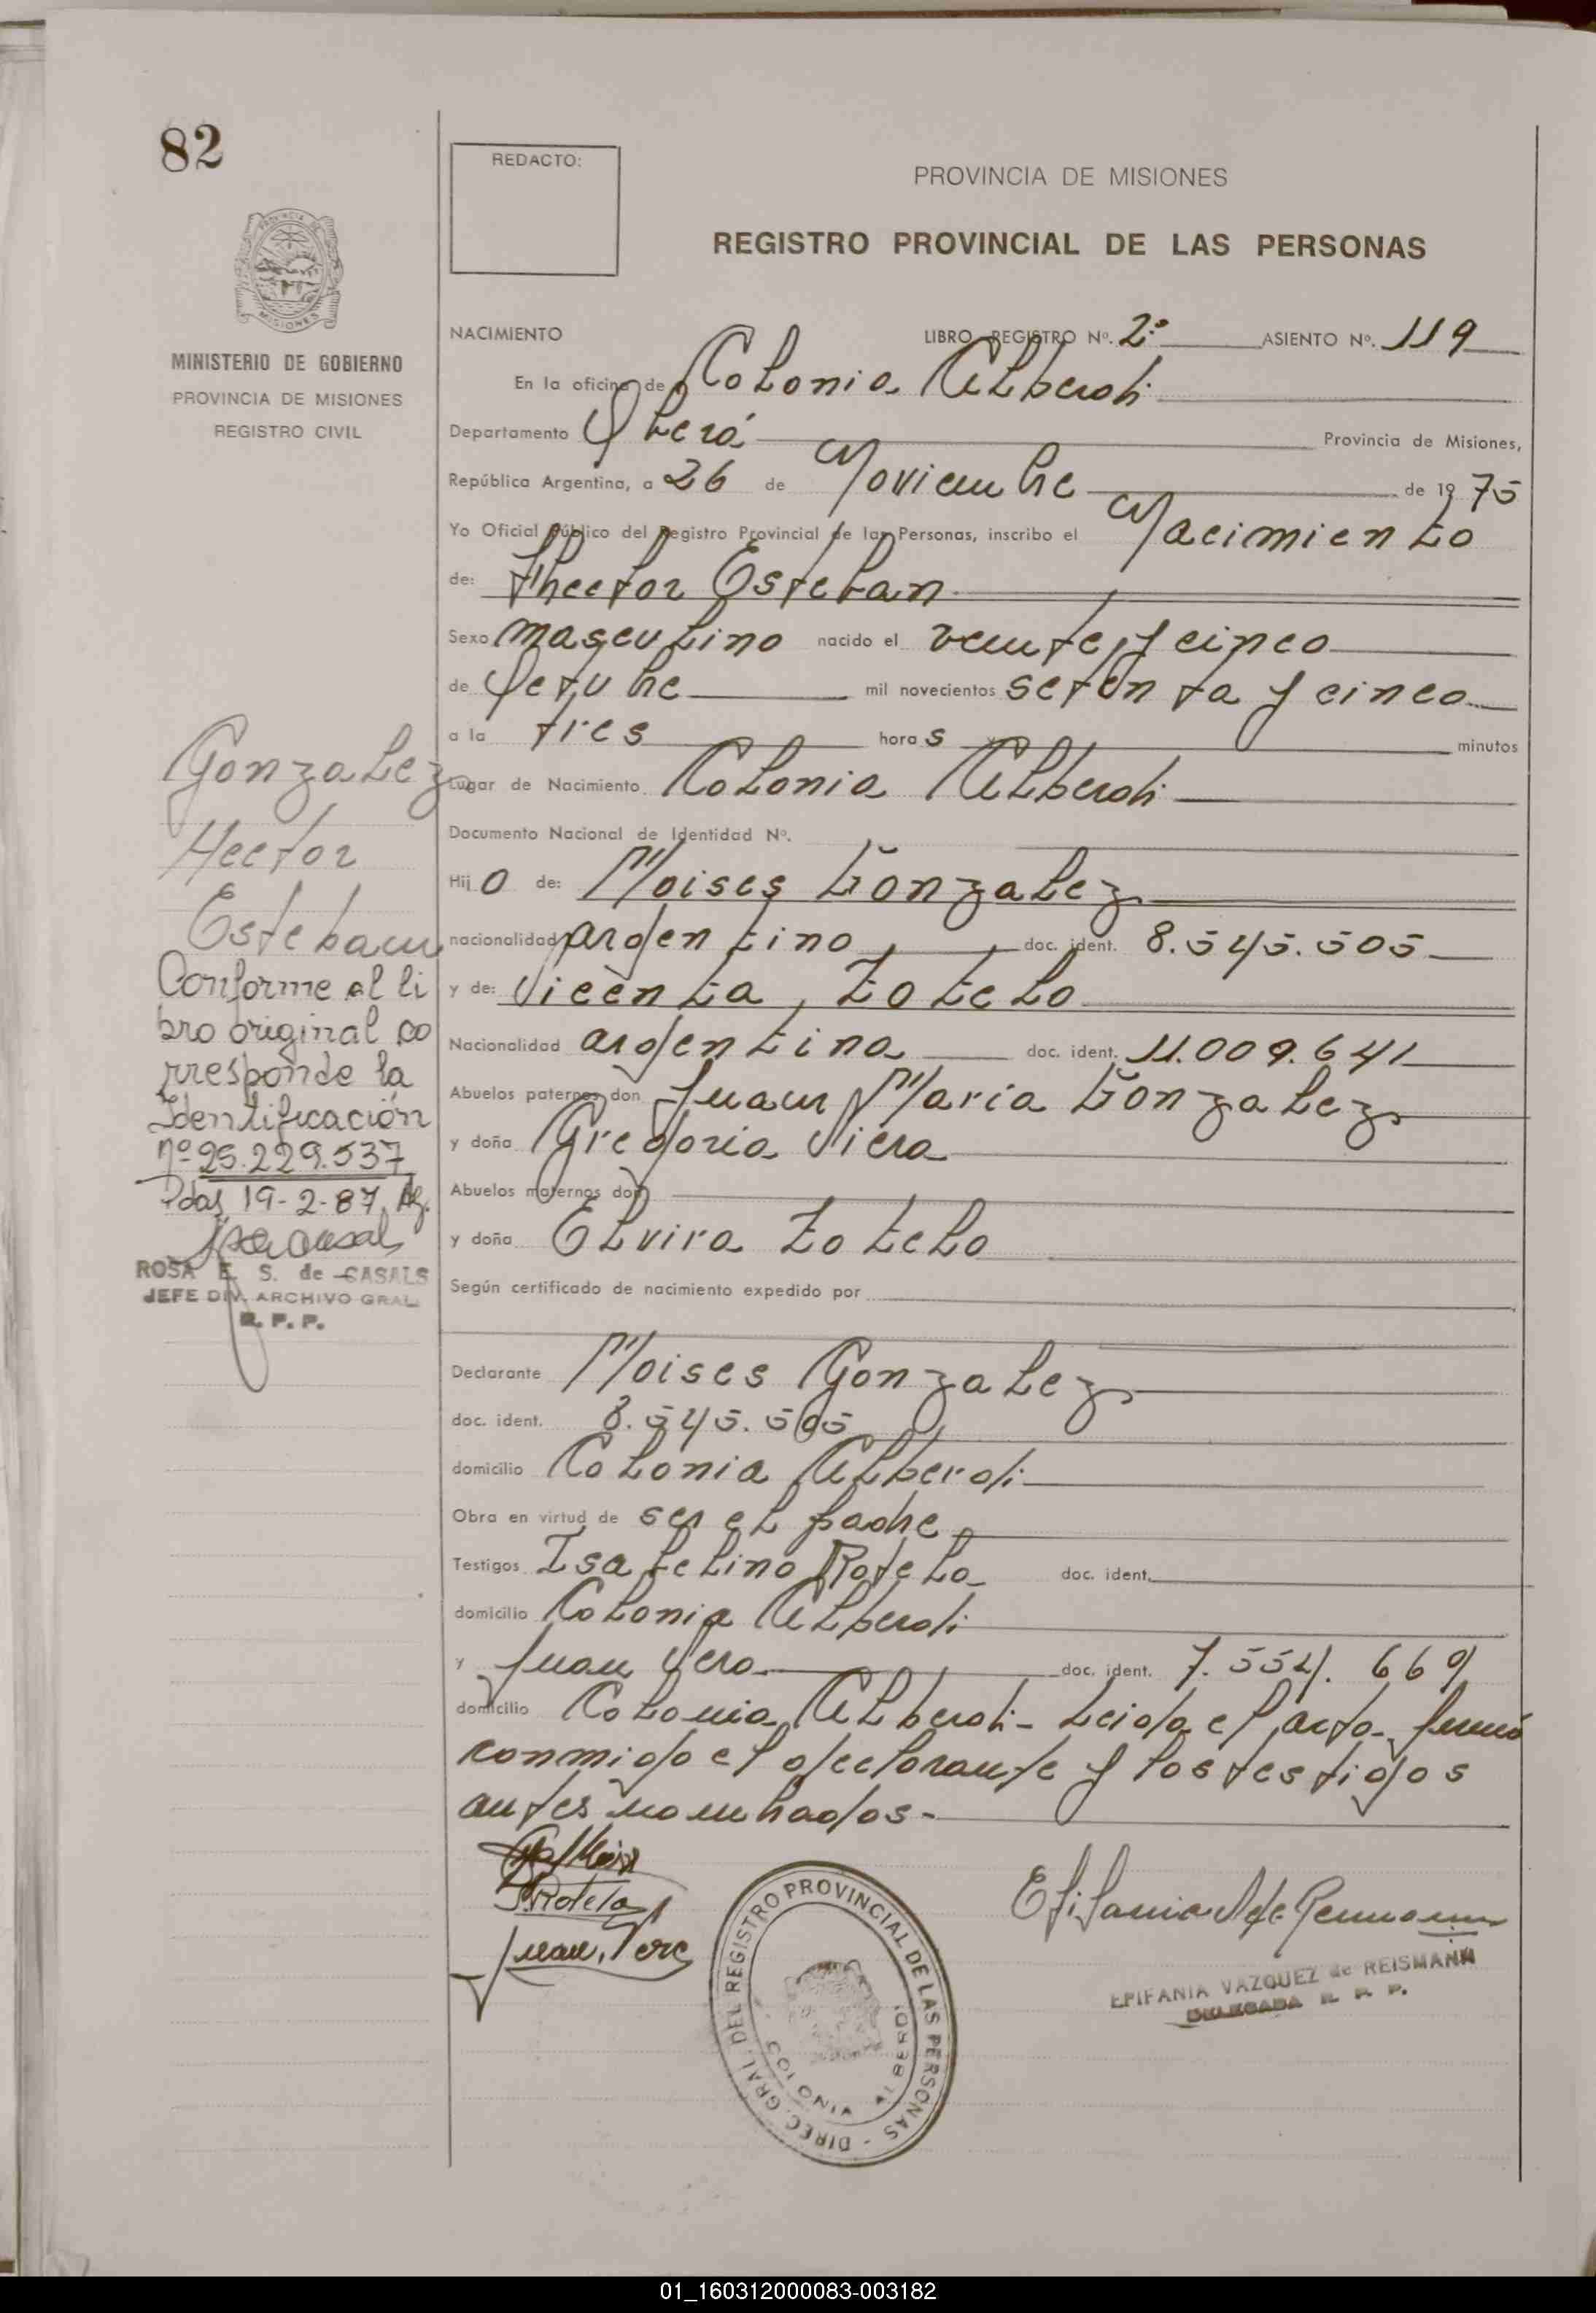 82
REDACTO:
PROVINCIA DE MISIONES
REGISTRO PROVINCIAL DE LAS PERSONAS
MINISTERIO DE GOBIERNO
PROVINCIA DE MISIONES
REGISTRO CIVIL
NACIMIENTO LIBRO REGISTRO Nº. 2º ASIENTO Nº. 119
En la oficina de Colonia Alberdi
Departamento Oberá Provincia de Misiones,
República Argentina, a 26 de Noviembre de 1975
Yo Oficial Público del Registro Provincial de las Personas, inscribo el Nacimiento
de: Hector Esteban
Sexo masculino nacido el veinte y cinco
de Octubre mil novecientos setenta y cinco
a la tres horas minutos
Lugar de Nacimiento Colonia Alberdi
Documento Nacional de Identidad Nº.
Hijo de: Moises Gonzalez
nacionalidad argentino doc. ident. 8.545.505
y de: Vicenta Zotelo
Nacionalidad argentina doc. ident. 11.009.641
Abuelos paternos don Juan Maria Gonzalez
y doña Gregoria Viera
Abuelos maternos don
y doña Elvira Zotelo
Según certificado de nacimiento expedido por
Declarante Moises Gonzalez
doc. ident. 8.545.505
domicilio Colonia Alberdi
Obra en virtud de ser el padre
Testigos Isabelino Rotela doc. ident.
domicilio Colonia Alberdi
y Juan Vera doc. ident. 7.554.669
domicilio Colonia Alberdi - Leida el acta firmó
conmigo el declarante y los testigos
antes nombrados-
Gonzalez
Hector
Esteban
Conforme al li
bro original co
rresponde la
Identificación
nº 25.229.537
Pdas, 19-2-87
ROSA E. S. de CASALS
JEFE DIV. ARCHIVO GRAL.
R. P. P.
Rotela
Juan Vera
DIREC. GRAL. DEL REGISTRO PROVINCIAL DE LAS PERSONAS
COLONIA ALBERDI
EPIFANIA VAZQUEZ de REISMANN
DELEGADA R. P. P.
01_160312000083-003182